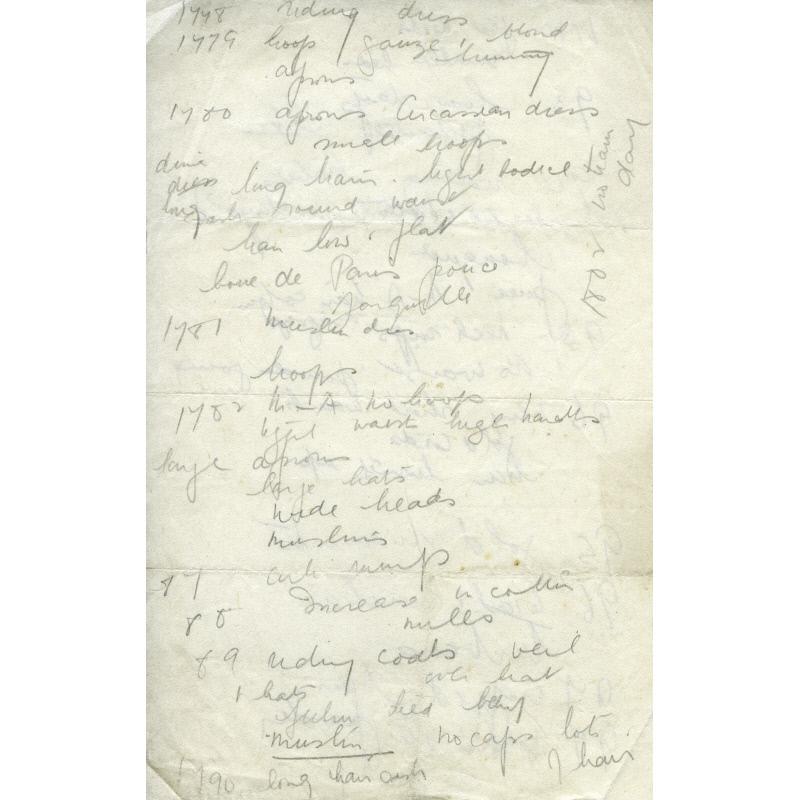 1778 riding dress
1779 hoops gauze, blond
aprons trimming
1780 aprons Circassian dress
small hoops
dress long hair. tight bodice
long sash round waist
hair low, flat
boue de Paris puce
Jonquille
1781 muslin dress
hoops
1782 no hoops
tight waist high
large aprons
large hats
wide heads
muslins
87 cork rumps
88 Increase in cotton
mills
89 riding coats veil
over hat
+ hats
tied
muslin no caps lots
of hair
1790 long hair
1802 no train
day